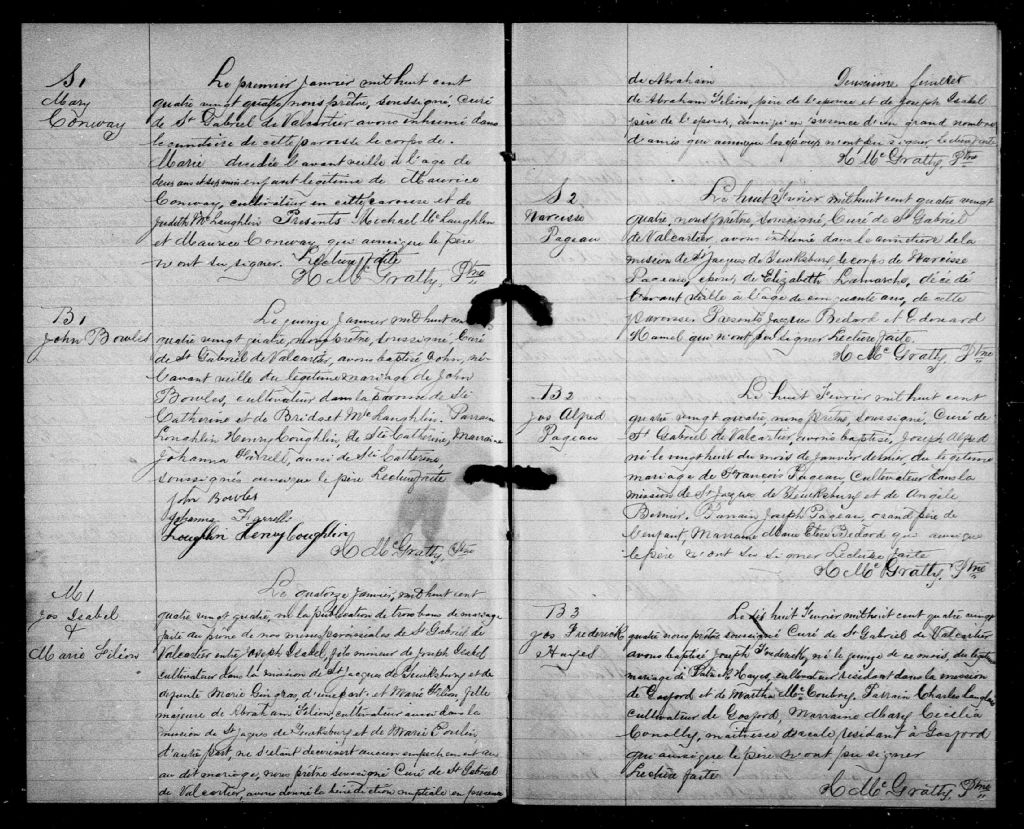 S1
Mary
Conway
Le premier Janvier mil huit cent
quatre vingt quatre, nous prêtre, soussigné, curé
de St Gabriel de Valcartier avons inhumé dans
le cimetière de cette paroisse le corps de
Marie decedée l'avant veille à l'age de
deux ans et six mois enfant legitime de Maurice
Conway, cultivateur en cette paroisse et de
Judith McLaughlin Présents Michael McLaughlin
et Maurice Conway, qui ainsi que le père
n'ont su signer. Lecture faite
H McGratty, Ptre
B1
John Bowles
Le quinze Janvier mil huit cent
quatre vingt quatre, nous prêtre, soussigné, Curé
de St Gabriel de Valcartier, avons baptisé John, né
l'avant veille du légitime mariage de John
Bowles, cultivateur dans la paroisse de Ste
Catherine et de Bridget McLaughlin. Parrain
Loughlin Henry Coughlin, de Ste Catherine, Marraine
Johanna Farrell, aussi de Ste Catherine
soussignés ainsi que le père Lecture faite
John Bowles
Johanna Farrell
Loughlin Henry Coughlin
H McGratty, Ptre
M1
Jos Isabel
+
Marie Filion
Le quatorze Janvier, mil huit cent
quatre vingt quatre, vu la publication de trois bans de mariage
faite au prone de nos messes paroissiales de St Gabriel de
Valcartier entre Joseph Isabel, fils mineur de Joseph Isabel
cultivateur dans la mission de St Jacques de Tewkesbury et de
défunte Marie Gingras d'une part: et Marie Filion fille
majeure de Abraham Filion, cultivateur aussi dans la
mission de St Jacques de Tewkesbury et de Marie Poulin
d'autre part, ne s'étant découvert aucun empêchement au
au dit mariage, nous prêtre soussigné Curé de St Gabriel
de Valcartier, avons donné la bénédiction nuptiale en présence
de Abraham Deuxième feuillet
de Abraham Filion, père de l'épouse et de Joseph Isabel
père de l'époux, ainsi qu'en présence d'un grand nombre
d'amis qui ainsi que les époux n'ont su signer Lecture faite
H McGratty, Ptre
S2
Narcisse
Pageau
Le huit Fevrier mil huit cent quatre vingt
quatre, nous prêtre, soussigné, Curé de St Gabriel
de Valcartier, avons inhumé dans le cimetière de la
mission de St Jacques de Tewkesbury le corps de Narcisse
Pageau, époux de Elizabeth Lamarche, décédé
l'avant veille à l'âge de cinquante ans, de cette
paroisse Présents Jacques Bedard et Edouard
Hamel qui n'ont pu signer Lecture faite.
H McGratty, Ptre
B2
Jos Alfred
Pageau
Le huit Fevrier mil huit cent
quatre vingt quatre, nous prêtre, soussigné, Curé de
St Gabriel de Valcartier, avons baptisé, Joseph Alfred
né le vingt huit du mois de Janvier dernier, du legitime
mariage de François Pageau Cultivateur dans la
mission de St Jacques de Tewkesbury et de Angèle
Bernier. Parrain Joseph Pageau, grand père de
l'enfant, Marraine Marie Bedard qui ainsi que
le père n'ont su signer Lecture faite
H McGratty, Ptre
B3
Jos Frederick
Hayes
Le dix huit Fevrier mil huit cent quatre vingt
quatre nous prêtre soussigné Curé de St Gabriel de Valcartier
avons baptisé Joseph Frederick, né le quinze de ce mois, du legitime
mariage de Hayes, cultivateur résidant dans la mission
de Gosford et de Martha McCoubrey, Parrain Charles Langlois
cultivateur de Gosford, Marraine Mary Cecilia
Conolly, maitresse d'école résidant à Gosford
qui ainsi que le père n'ont pu signer
Lecture faite
H McGratty, Ptre